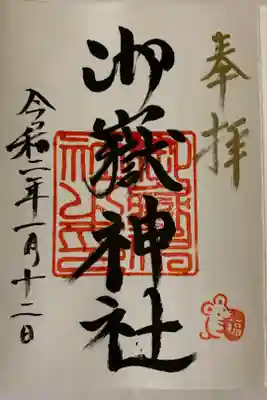 奉拝
御嶽神社
令和二年一月十二日
福